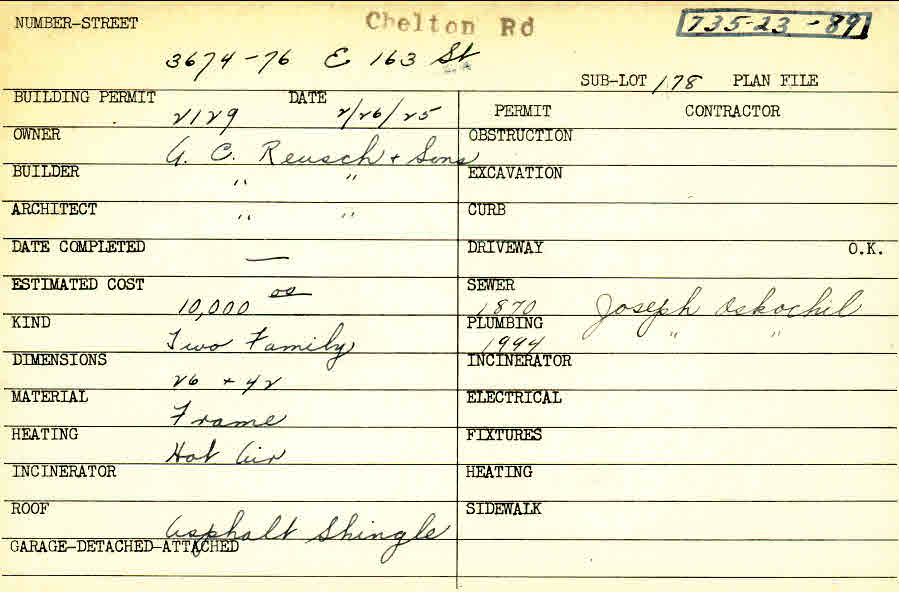 NUMBER-STREET Chelton Rd 735-23-89
3674-76 E 163 St
SUB-LOT 178 PLAN FILE
BUILDING PERMIT 2129 DATE 2/26/25 PERMIT CONTRACTOR
OWNER A. C. Reusch + Sons OBSTRUCTION
BUILDER " " EXCAVATION
ARCHITECT " " CURB
DATE COMPLETED — DRIVEWAY O.K.
ESTIMATED COST 10,000 00 SEWER 1870 Joseph Oskochil
KIND Two Family PLUMBING 1994 " "
DIMENSIONS 26 + 42 INCINERATOR
MATERIAL Frame ELECTRICAL
HEATING Hot Air FIXTURES
INCINERATOR HEATING
ROOF Asphalt Shingle SIDEWALK
GARAGE-DETACHED-ATTACHED